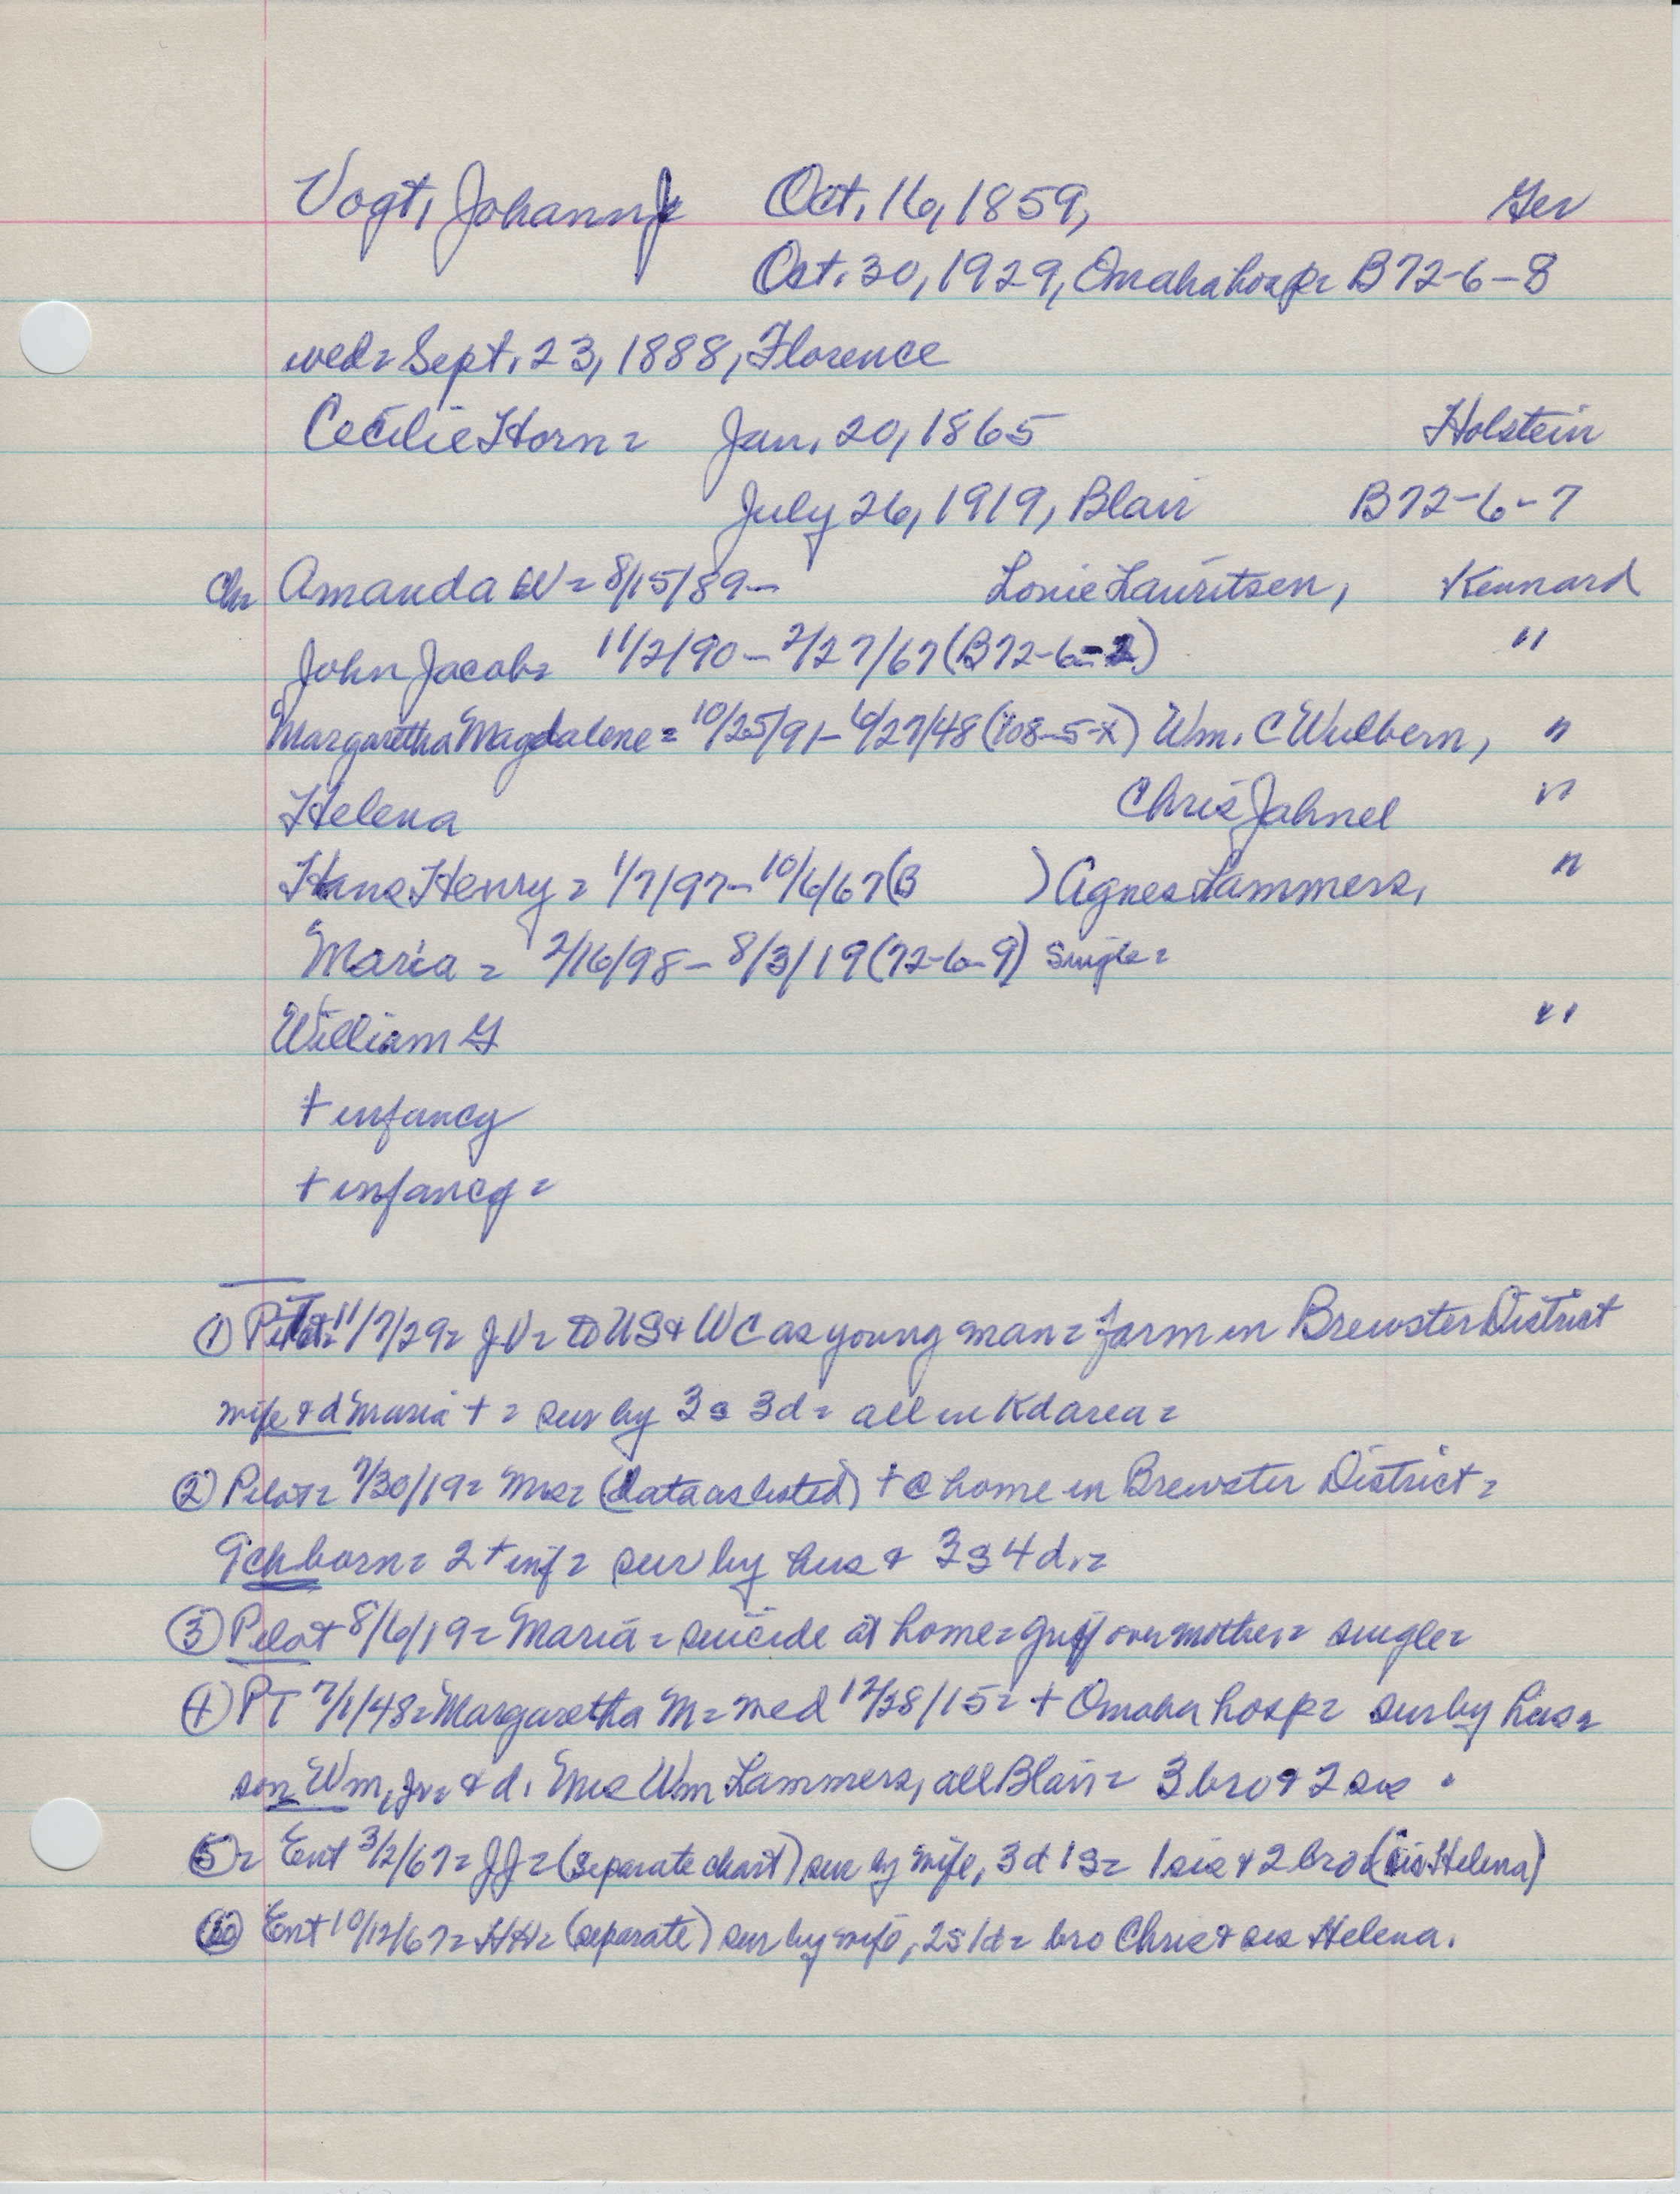 Vogt, Johann J Oct. 16, 1859, Ger
Oct. 30, 1929, Omaha hosp = B72-6-8
wed = Sept. 23, 1888, Florence
Cecilie Horn = Jan. 20, 1865 Holstein
July 26, 1919, Blair B72-6-7
Ch = Amanda W = 8/15/89 - Louie Lauritsen, Kennard
John Jacob = 11/2/90 - 2/27/67 (B72-6-2) "
Margaretha Magdalene = 10/25/91 - 6/27/48 (108-5-x) Wm. C Wulbern, "
Helena Chris Jahnel "
Hans Henry = 1/7/97 - 10/6/67 (B ) Agnes Lammers, "
Maria = 2/16/98 - 8/3/19 (72-6-9) single =
William G "
+ infancy
+ infancy =
① PT 11/7/29 = JV = to US & WC as young man = farm in Brewster District
wife & d Maria + = sur by 3s 3d = all in Kd area =
② Pilot = 7/30/19 = Mrs = (data as listed) + @ home in Brewster District =
9 ch born = 2 + inf = sur by hus & 3s 4d. =
③ Pilot 8/6/19 = Maria = suicide at home = grief over mother = single =
④ PT 7/1/48 = Margaretha M = wed 12/28/15 = + Omaha hosp = sur by hus =
son Wm, Jr = & d. Mrs Wm Lammers, all Blair = 3 bro & 2 sis .
⑤ = Ent 3/2/67 = JJ = (separate chart) sur by wife, 3d 1s = 1 sis & 2 bro (sis Helena)
⑥ Ent 10/12/67 = HH = (separate) sur by wife, 2s 1d = bro Chris & sis Helena.